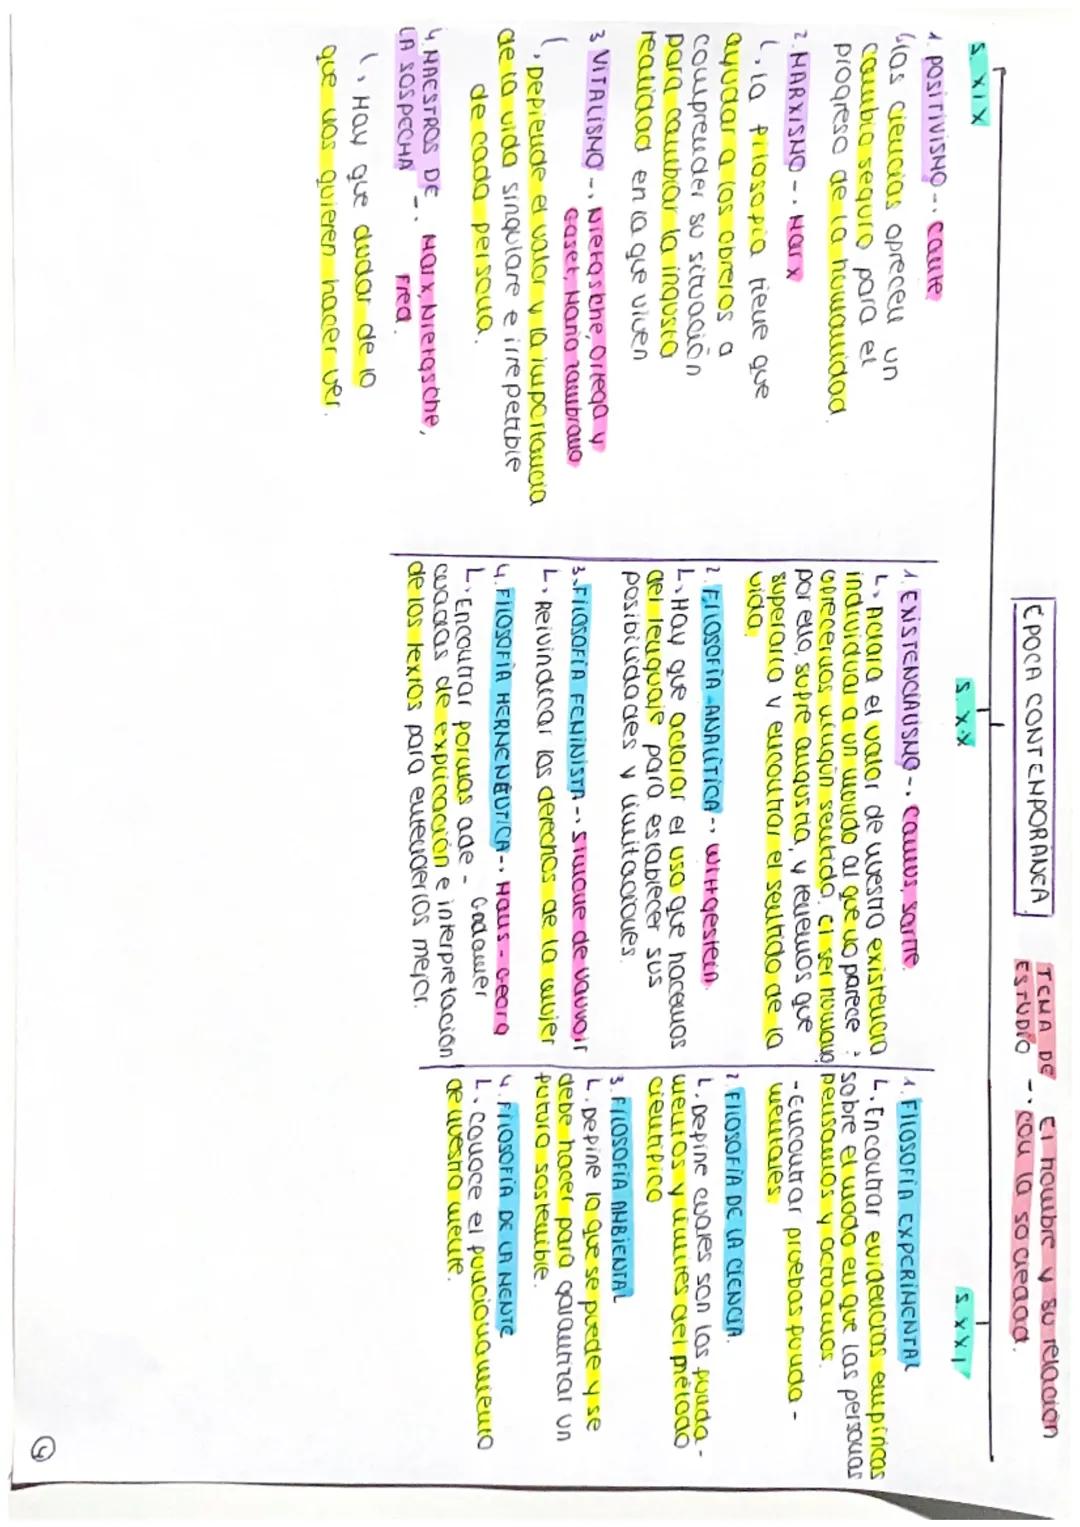 ÉPOCA CONTEMPORÁNEA.
TEMA DE ESTUDIO -> El hombre y su relación
con la sociedad.
S. XIX
1. POSITIVISMO -> Comte
↳ las ciencias oprecen un
cambio seguro para el
progreso de la humanidad.
2. MARXISMO -> Marx
↳ la filosofia tiene que
ayudar a los obreros a
comprender su situación
para cambiar la injusta
realidad en la que viven
3 VITALISMO -> Nietgsche, Ortega y
Gaset, Maria Zambrano
↳ Depiende el valor y la importancia
de la vida singulare e irrepetible
de cada persona.
4. MAESTROS DE LA SOSPECHA -> Marx, Nietgsche,
Fred.
↳ Hay que dudar de lo
que nos quieren hacer ver.
S. XX
1. EXISTENCIALISMO -> Camus, Sartre.
↳ Aclara el valor de nuestra existencia
individual a un mundo al que no parece
oprecernos ningún sentido. El ser humano
por ello, supre angustia, y tenemos que
superarla y encontrar el sentido de la
vida.
2. FILOSOFÍA ANALÍTICA -> Wittgestein.
↳ Hay que aclarar el uso que hacemos
del lenguaje para establecer sus
posibilidades y limitaciones.
3. FILOSOFÍA FEMINISTA -> Simone de Vauvoir
↳ Reivindicar los derechos de la mujer
4. FILOSOFÍA HERMENÉUTICA -> Hans-Georg
Gadamer
↳ Encontrar formas ade-
cuadas de explicación e interpretación
de los textos para entenderlos mejor.
S. XXI
1. FILOSOFÍA EXPERIMENTAL
↳ Encontrar evidencias empíricas
sobre el modo en que las personas
pensamos y actuamos.
- Encontrar pruebas punda-
mentales
2. FILOSOFÍA DE LA CIENCIA.
↳ Depine cuales son los punda-
mentos y limites del método
cientipico
3. FILOSOFÍA AMBIENTAL
↳ Depine lo que se puede y se
debe hacer para garantizar un
puturo sostenible.
4. FILOSOFÍA DE LA MENTE
↳ Conoce el puncionamiento
de nuestra mente.
4